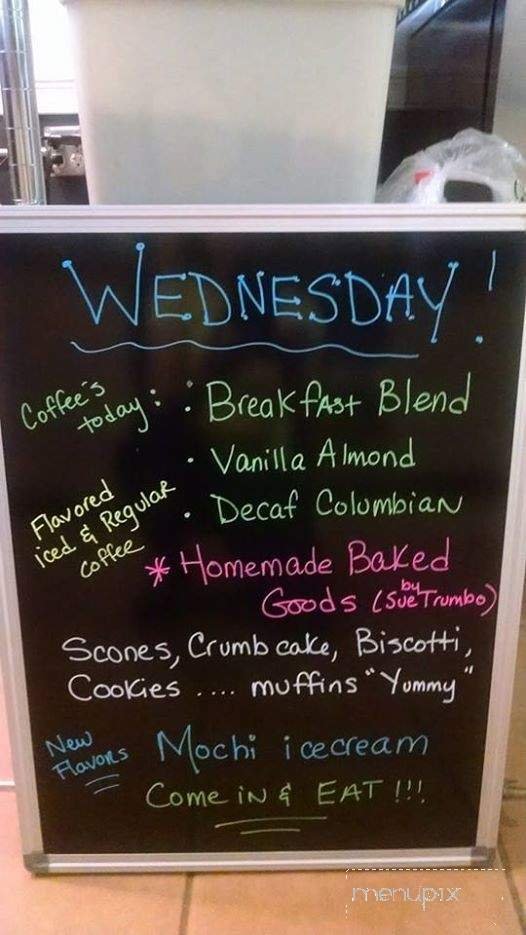 WEDNESDAY!
Coffee's today: : Breakfast Blend
· Vanilla Almond
Flavored iced & Regular coffee
· Decaf Columbian
* Homemade Baked
Goods (by Sue Trumbo)
Scones, Crumb cake, Biscotti,
Cookies .... muffins "Yummy"
New Flavors Mochi icecream
Come in & EAT!!!
menupix